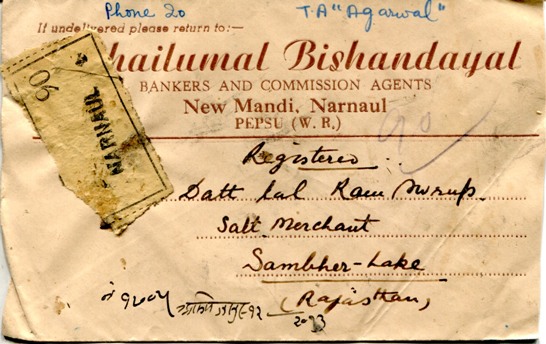 Phone 20 T.A "Agarwal"
If undelivered please return to:—
hailumal Bishandayal
BANKERS AND COMMISSION AGENTS
New Mandi, Narnaul
PEPSU (W. R.)
90
NARNAUL
90
Registered
Datt Lal Ram
Salt Merchant
Sambher-Lake
(Rajasthan)